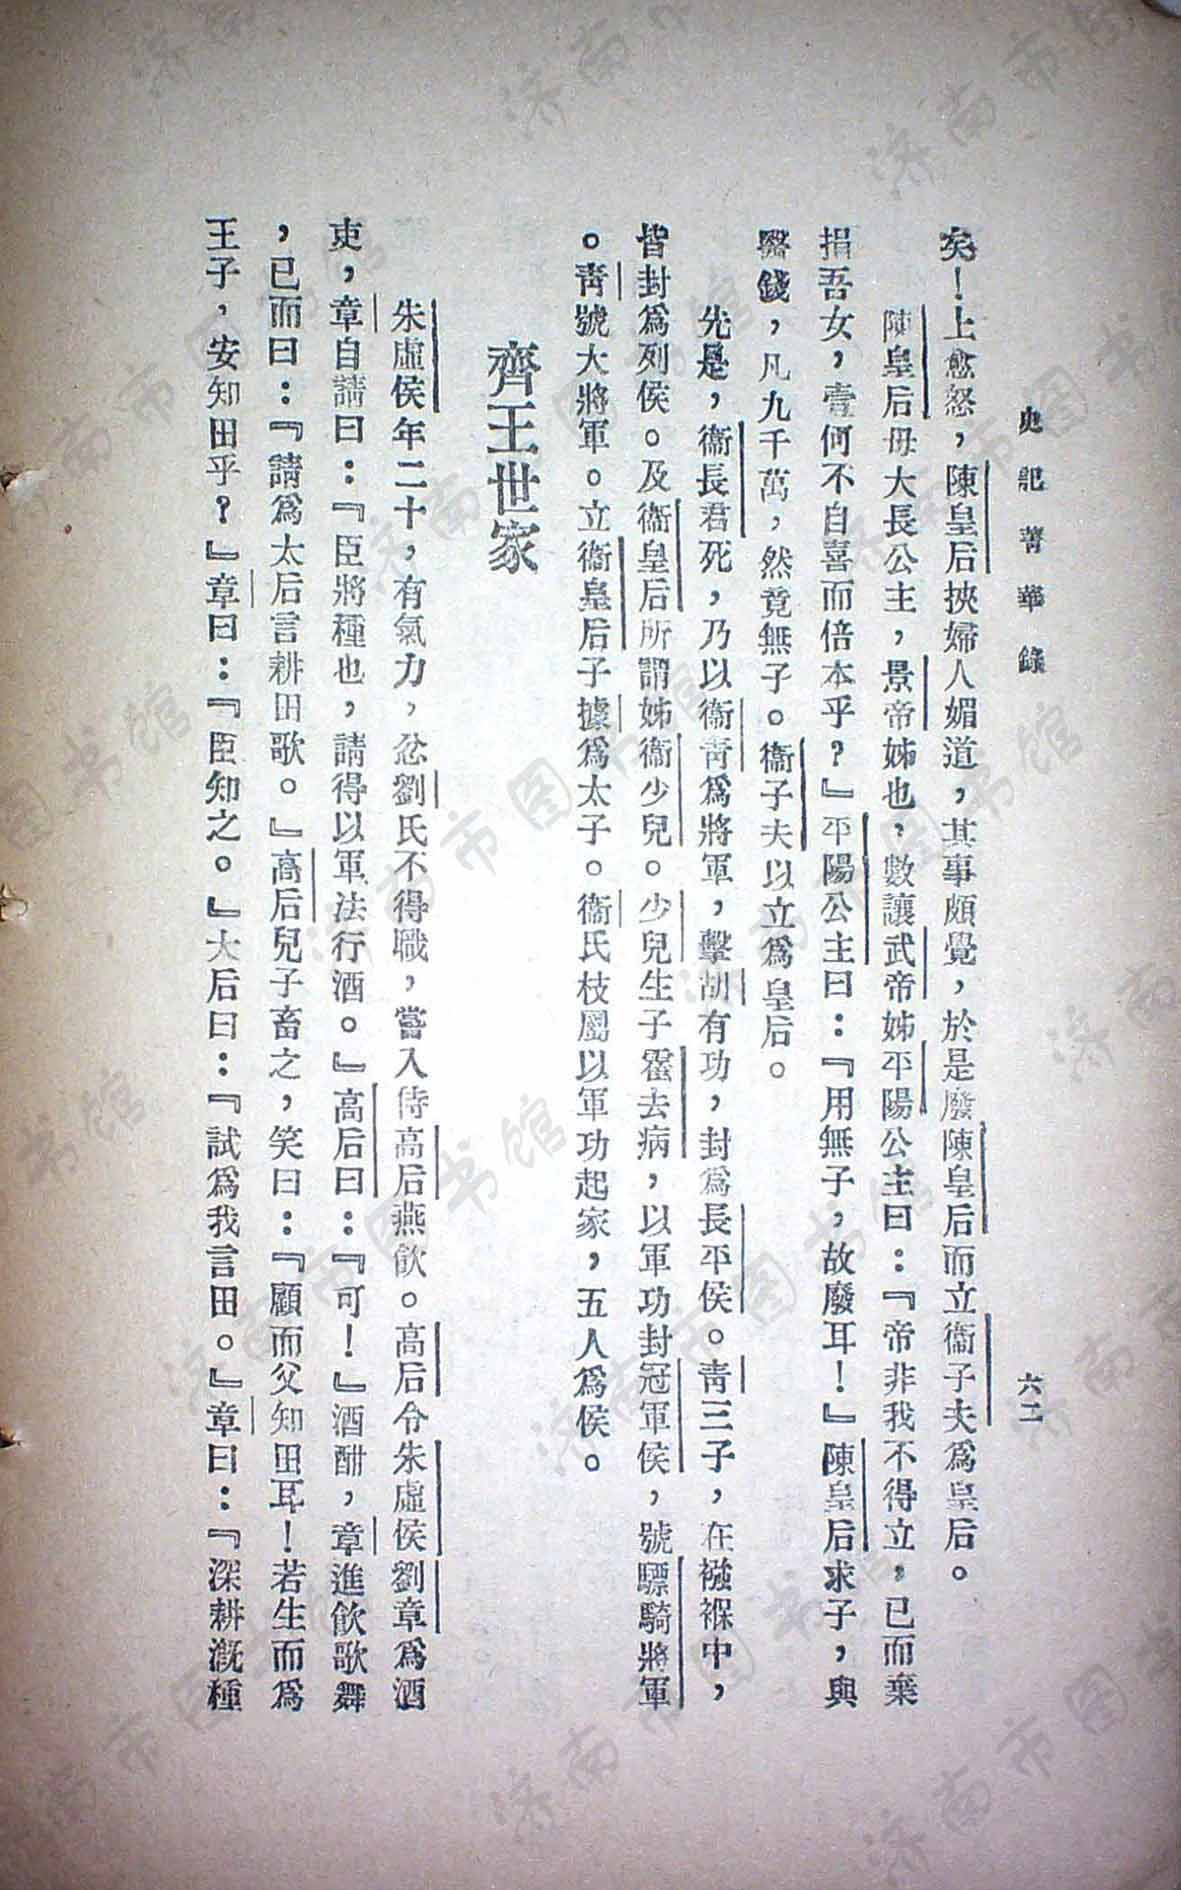 史記菁華錄
六二
矣！上愈怒，陳皇后挾婦人媚道，其事頗覺，於是廢陳皇后而立衞子夫爲皇后。
陳皇后母大長公主，景帝姊也，數讓武帝姊平陽公主曰：『帝非我不得立，已而棄
捐吾女，壹何不自喜而倍本乎？』平陽公主曰：『用無子，故廢耳！』陳皇后求子，與
醫錢，凡九千萬，然竟無子。衞子夫以立爲皇后。
先是，衞長君死，乃以衞靑爲將軍，擊胡有功，封爲長平侯。靑三子，在襁褓中，
皆封爲列侯。及衞皇后所謂姊衞少兒。少兒生子霍去病，以軍功封冠軍侯，號驃騎將軍
。靑號大將軍。立衞皇后子據爲太子。衞氏枝屬以軍功起家，五人爲侯。
齊王世家
朱虛侯年二十，有氣力，忿劉氏不得職，嘗入侍高后燕飲。高后令朱虛侯劉章爲酒
吏，章自請曰：『臣將種也，請得以軍法行酒。』高后曰：『可！』酒酣，章進飲歌舞
，已而曰：『請爲太后言耕田歌。』高后兒子畜之，笑曰：『顧而父知田耳！若生而爲
王子，安知田乎？』章曰：『臣知之。』大后曰：『試爲我言田。』章曰：『深耕溉種
济南市图书馆